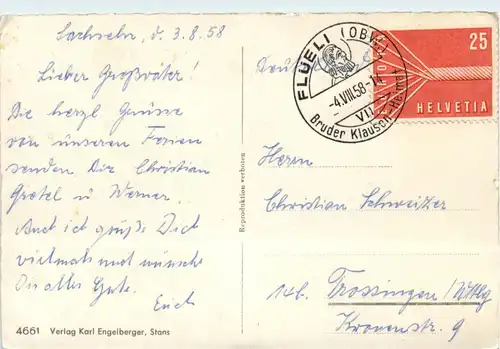 Sachseln, d. 3.8.58
Lieber Großvater!
Die herzl. Grüsse
von unseren Ferien
senden Dir Christian
Gretel u Werner.
Auch ich grüße Dich
vielmals und wünsche
Dir alles Gute.
Erich
4661 Verlag Karl Engelberger, Stans
Reproduktion verboten
FLÜELI (OBW.)
-4.VIII.58-
Bruder Klausen-Heimat
25
HELVETIA
Herrn
Christian Schweitzer
14b. Trossingen/Wttbg
Kronenstr. 9